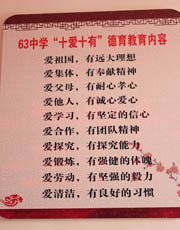 63中学“十爱十有”德育教育内容
爱祖国，有远大理想
爱集体，有奉献精神
爱父母，有耐心孝心
爱他人，有诚心爱心
爱学习，有坚定的信心
爱合作，有团队精神
爱探究，有探究能力
爱锻炼，有强健的体魄
爱劳动，有坚强的毅力
爱清洁，有良好的习惯